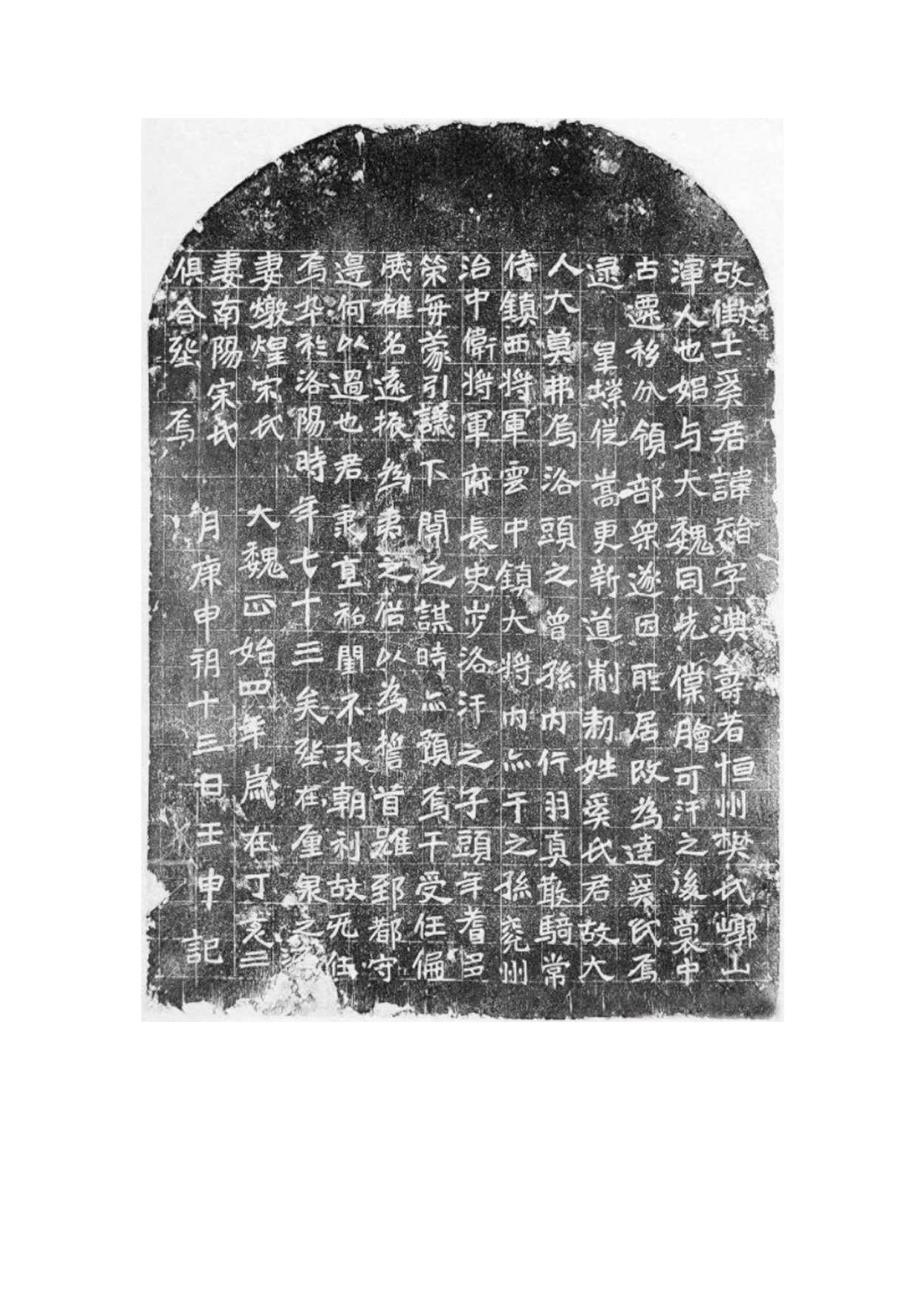 故徵士奚君諱智字淟籌者恒州樊氏㟭山
渾人也始与大魏同先僕膾可汗之後裔中
古遷移分領部眾遂因所居改為達奚氏焉
逮 皇業徙嵩更新道制勑姓奚氏君故大
人大莫弗烏洛頭之曾孫內行羽真散騎常
侍鎮西將軍雲中鎮大將內亦干之孫兗州
治中衛將軍府長史步洛汗之子頭年耆多
策每蒙引議下關之謀時亦預焉干受任偏
威雄名遠振為夷之俗以為誓首雖郅都守
邊何以過也君秉直私閨不求朝利故死任
焉卒於洛陽時年七十三矣塟在廛泉之源
妻燉煌宋氏 大魏正始四年歲在丁亥三
妻南陽宗氏 月庚申朔十三日壬申記
俱合塟焉